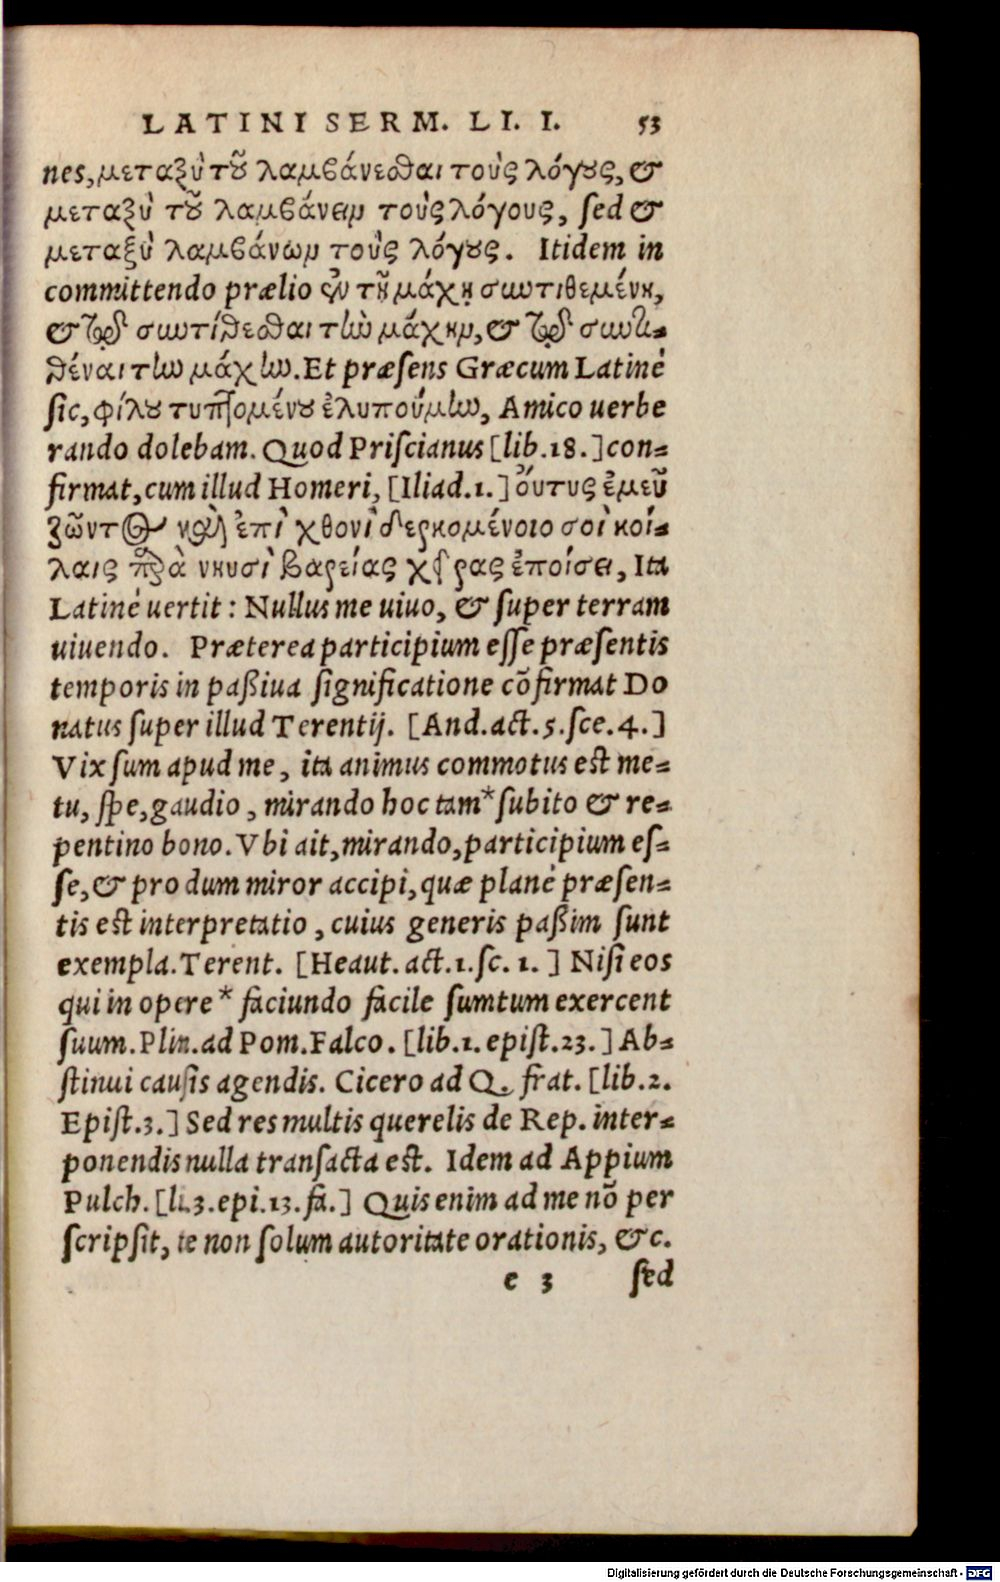 LATINI SERM. LI. I. 53
nes, μεταξὺ τοῦ λαμβάνεσθαι τοὺς λόγους, &
μεταξὺ τοῦ λαμβάνειν τοὺς λόγους, ſed &
μεταξὺ λαμβάνων τοὺς λόγους. Itidem in
committendo prælio ἐν τῇ μάχῃ συντιθεμένῃ,
& ἐν τῷ συντίθεσθαι τὴν μάχην, & ἐν τῷ συντι-
θέναι τὴν μάχην. Et præſens Græcum Latinè
ſic, φίλου τυπτομένου ἐλυπούμην, Amico uerbe
rando dolebam. Quod Priſcianus [lib.18.] con-
firmat, cum illud Homeri, [Iliad.1.] οὔτις ἐμεῦ
ζῶντος καὶ ἐπὶ χθονὶ δερκομένοιο σοὶ κοί-
λαις παρὰ νηυσὶ βαρείας χεῖρας ἐποίσει, Ita
Latinè uertit: Nullus me uiuo, & ſuper terram
uiuendo. Præterea participium eſſe præſentis
temporis in paßiua ſignificatione cõfirmat Do
natus ſuper illud Terentij. [And.act.5.ſce.4.]
Vix ſum apud me, ita animus commotus eſt me-
tu, ſpe, gaudio, mirando hoc tam* ſubito & re-
pentino bono. Vbi ait, mirando, participium eſ-
ſe, & pro dum miror accipi, quæ planè præſen-
tis eſt interpretatio, cuius generis paßim ſunt
exempla. Terent. [Heaut. act.1.ſc. 1. ] Niſi eos
qui in opere* faciundo facile ſumtum exercent
ſuum. Plin. ad Pom. Falco. [lib.1. epiſt.23.] Ab-
ſtinui cauſis agendis. Cicero ad Q. frat. [lib.2.
Epiſt.3.] Sed res multis querelis de Rep. inter-
ponendis nulla tranſacta eſt. Idem ad Appium
Pulch. [li.3.epi.13.fa.] Quis enim ad me nõ per
ſcripſit, te non ſolum autoritate orationis, &c.
e 3 ſed
Digitalisierung gefördert durch die Deutsche Forschungsgemeinschaft - DFG